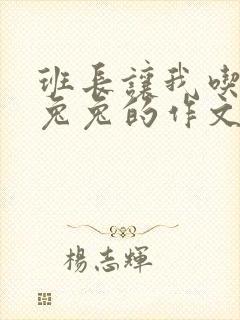 班长讓我喫
兔兔的作文
楊志輝